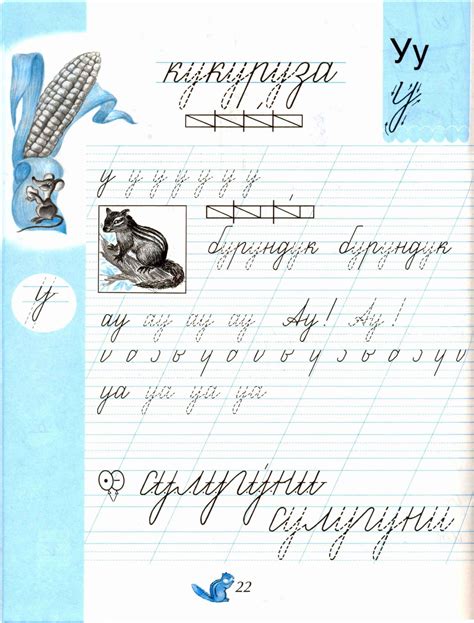 Уу
У
кукуруза
у у у у у у у
бурундук бурундук
у
ау ау ау ау Ау! Ау!
уа уа уа уа
сулугуни
сулугуни
22